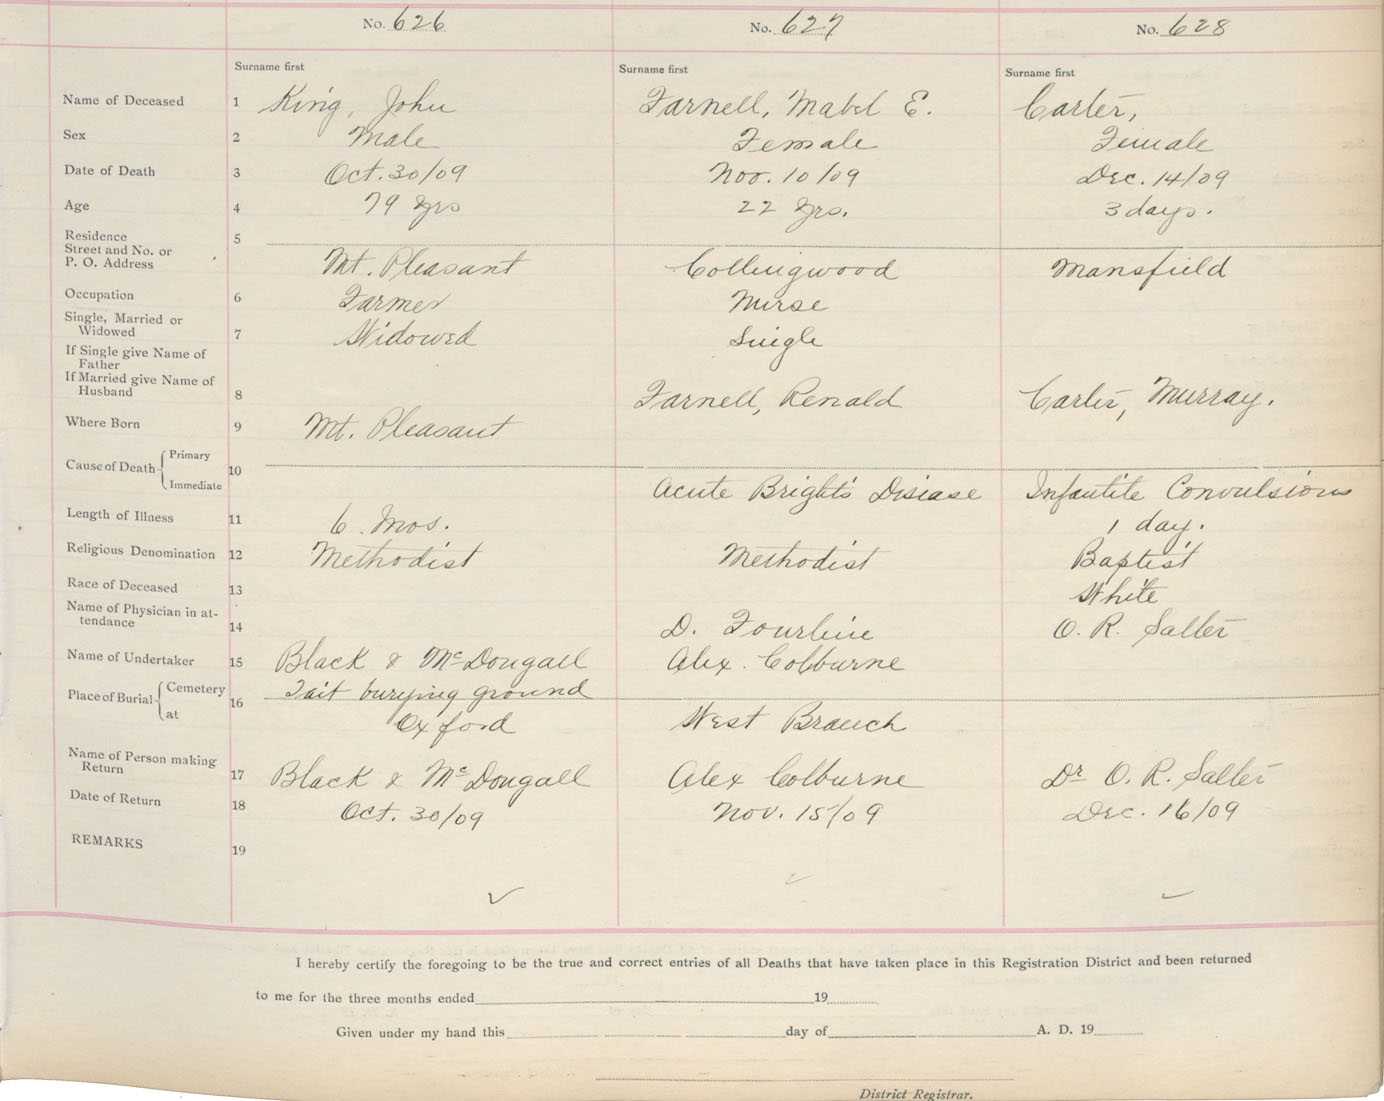 No. 626 No. 627 No. 628
Surname first Surname first Surname first
Name of Deceased 1 King, John Farnell, Mabel E. Carter,
Sex 2 Male Female Female
Date of Death 3 Oct. 30/09 Nov. 10/09 Dec. 14/09
Age 4 79 yrs 22 yrs. 3 days.
Residence 5
Street and No. or
P. O. Address Mt. Pleasant Collingwood Mansfield
Occupation 6 Farmer Nurse
Single, Married or
Widowed 7 Widowed Single
If Single give Name of
Father
If Married give Name of
Husband 8 Farnell, Renald Carter, Murray.
Where Born 9 Mt. Pleasant
Cause of Death Primary 10
Immediate Acute Bright's Disiase Infantile Convulsions
Length of Illness 11 6 Mos. 1 day.
Religious Denomination 12 Methodist Methodist Baptist
Race of Deceased 13 White
Name of Physician in at-
tendance 14 D. O. R. Salter
Name of Undertaker 15 Black & McDougall Alex. Colburne
Place of Burial Cemetery 16 Tait burying ground
at Oxford West Branch
Name of Person making
Return 17 Black & McDougall Alex Colburne Dr O. R. Salter
Date of Return 18 Oct. 30/09 Nov. 15/09 Dec. 16/09
REMARKS 19
I hereby certify the foregoing to be the true and correct entries of all Deaths that have taken place in this Registration District and been returned
to me for the three months ended 19
Given under my hand this day of A. D. 19
District Registrar.